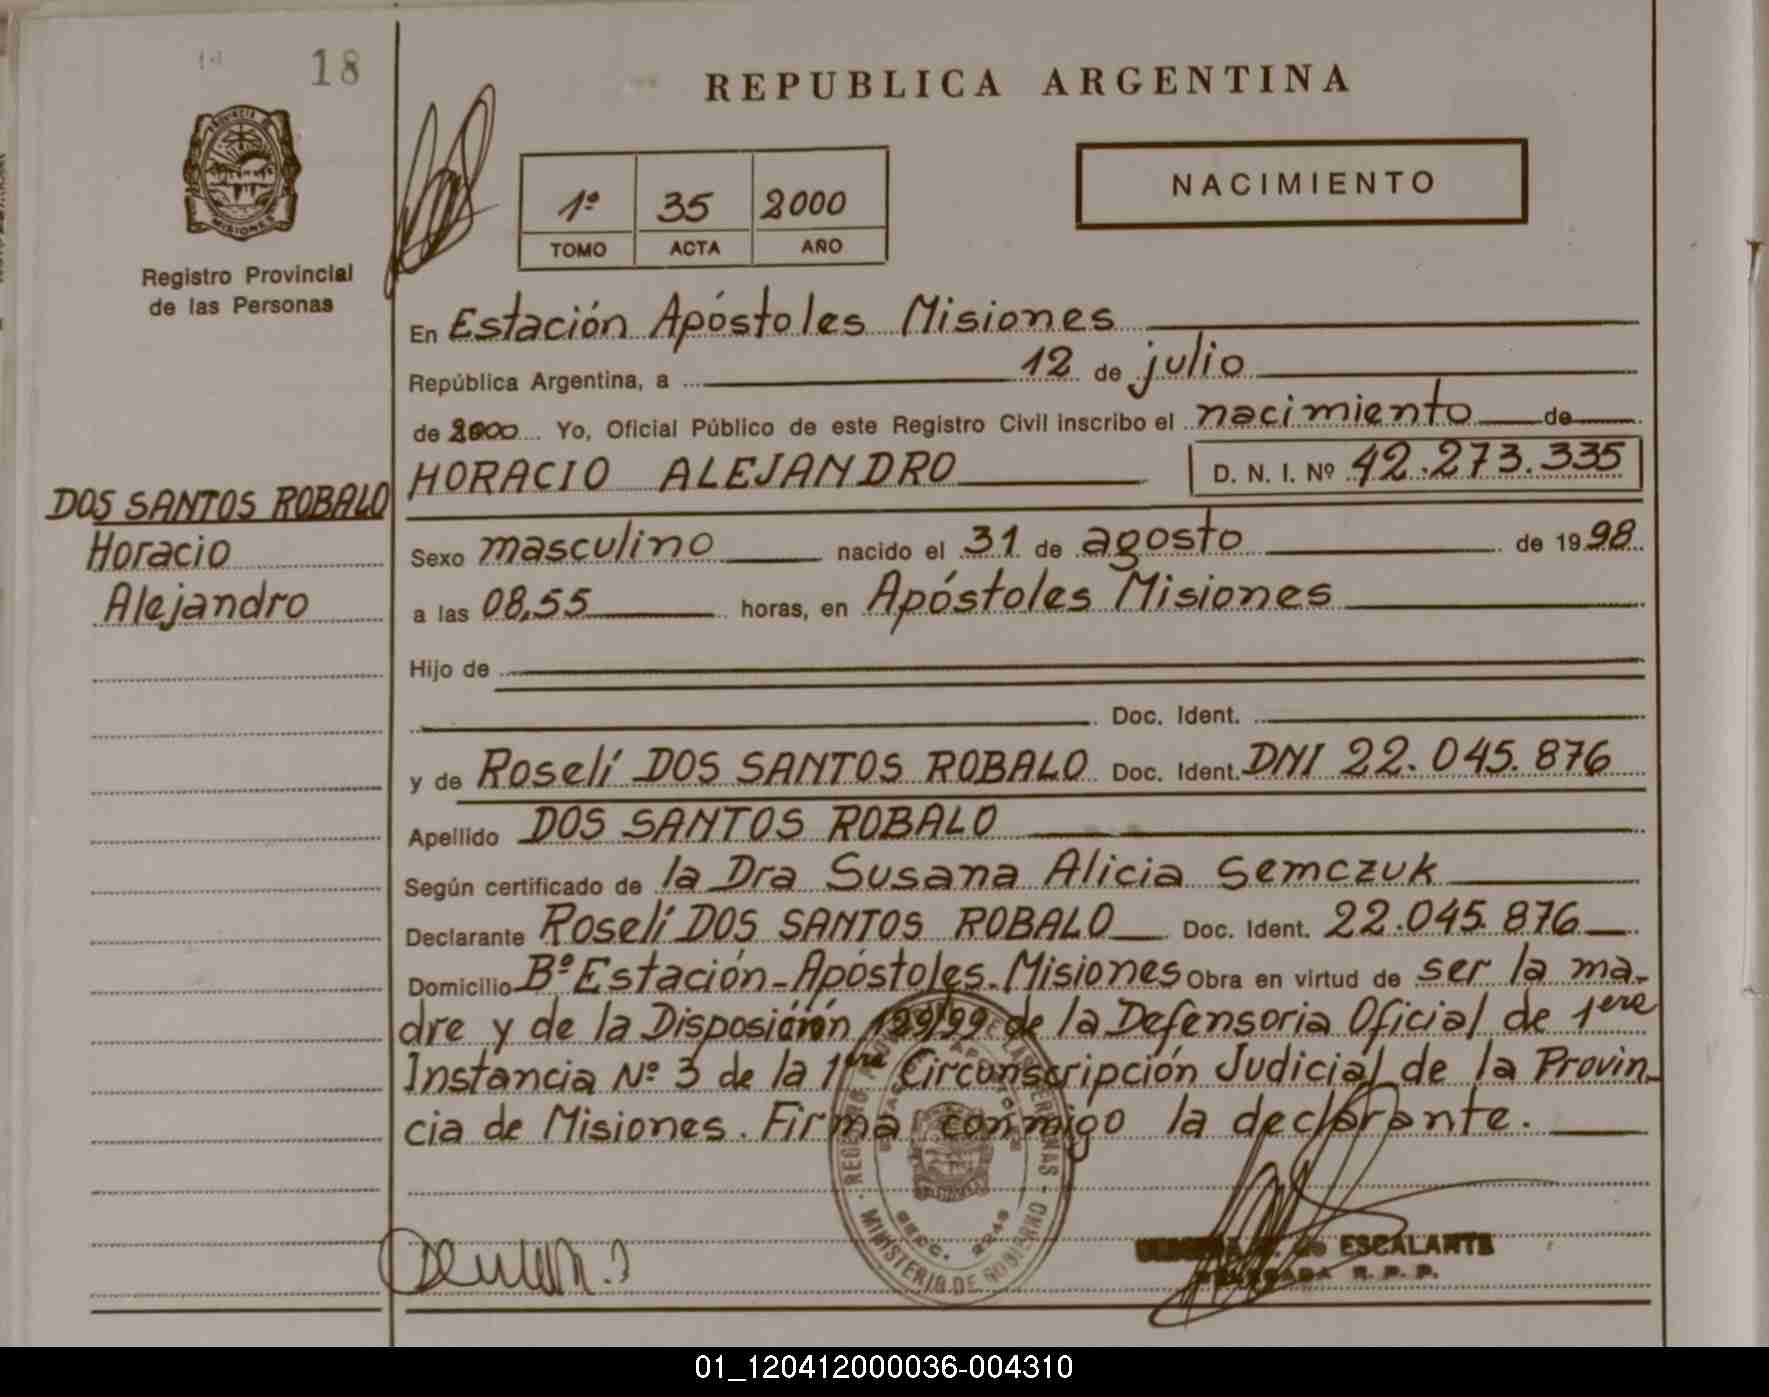 18
REPUBLICA ARGENTINA
PROVINCIA DE
MISIONES
Registro Provincial
de las Personas
1º 35 2000
TOMO ACTA AÑO
NACIMIENTO
En Estación Apóstoles Misiones
República Argentina, a 12 de julio
de 2000 Yo, Oficial Público de este Registro Civil inscribo el nacimiento de
HORACIO ALEJANDRO D. N. I. Nº 42.273.335
DOS SANTOS ROBALO
Horacio
Alejandro
Sexo masculino nacido el 31 de agosto de 1998
a las 08,55 horas, en Apóstoles Misiones
Hijo de
Doc. Ident.
y de Roselí DOS SANTOS ROBALO Doc. Ident. DNI 22.045.876
Apellido DOS SANTOS ROBALO
Según certificado de la Dra Susana Alicia Semczuk
Declarante Roselí DOS SANTOS ROBALO Doc. Ident. 22.045.876
Domicilio Bº Estación-Apóstoles-Misiones Obra en virtud de ser la ma-
dre y de la Disposición 129/99 de la Defensoria Oficial de 1era
Instancia Nº 3 de la 1era Circunscripción Judicial de la Provin-
cia de Misiones. Firma conmigo la declarante.
REGISTRO PROVINCIAL DE LAS PERSONAS
MINISTERIO DE GOBIERNO
de ESCALANTE
DELEGADA R. P. P.
01_120412000036-004310